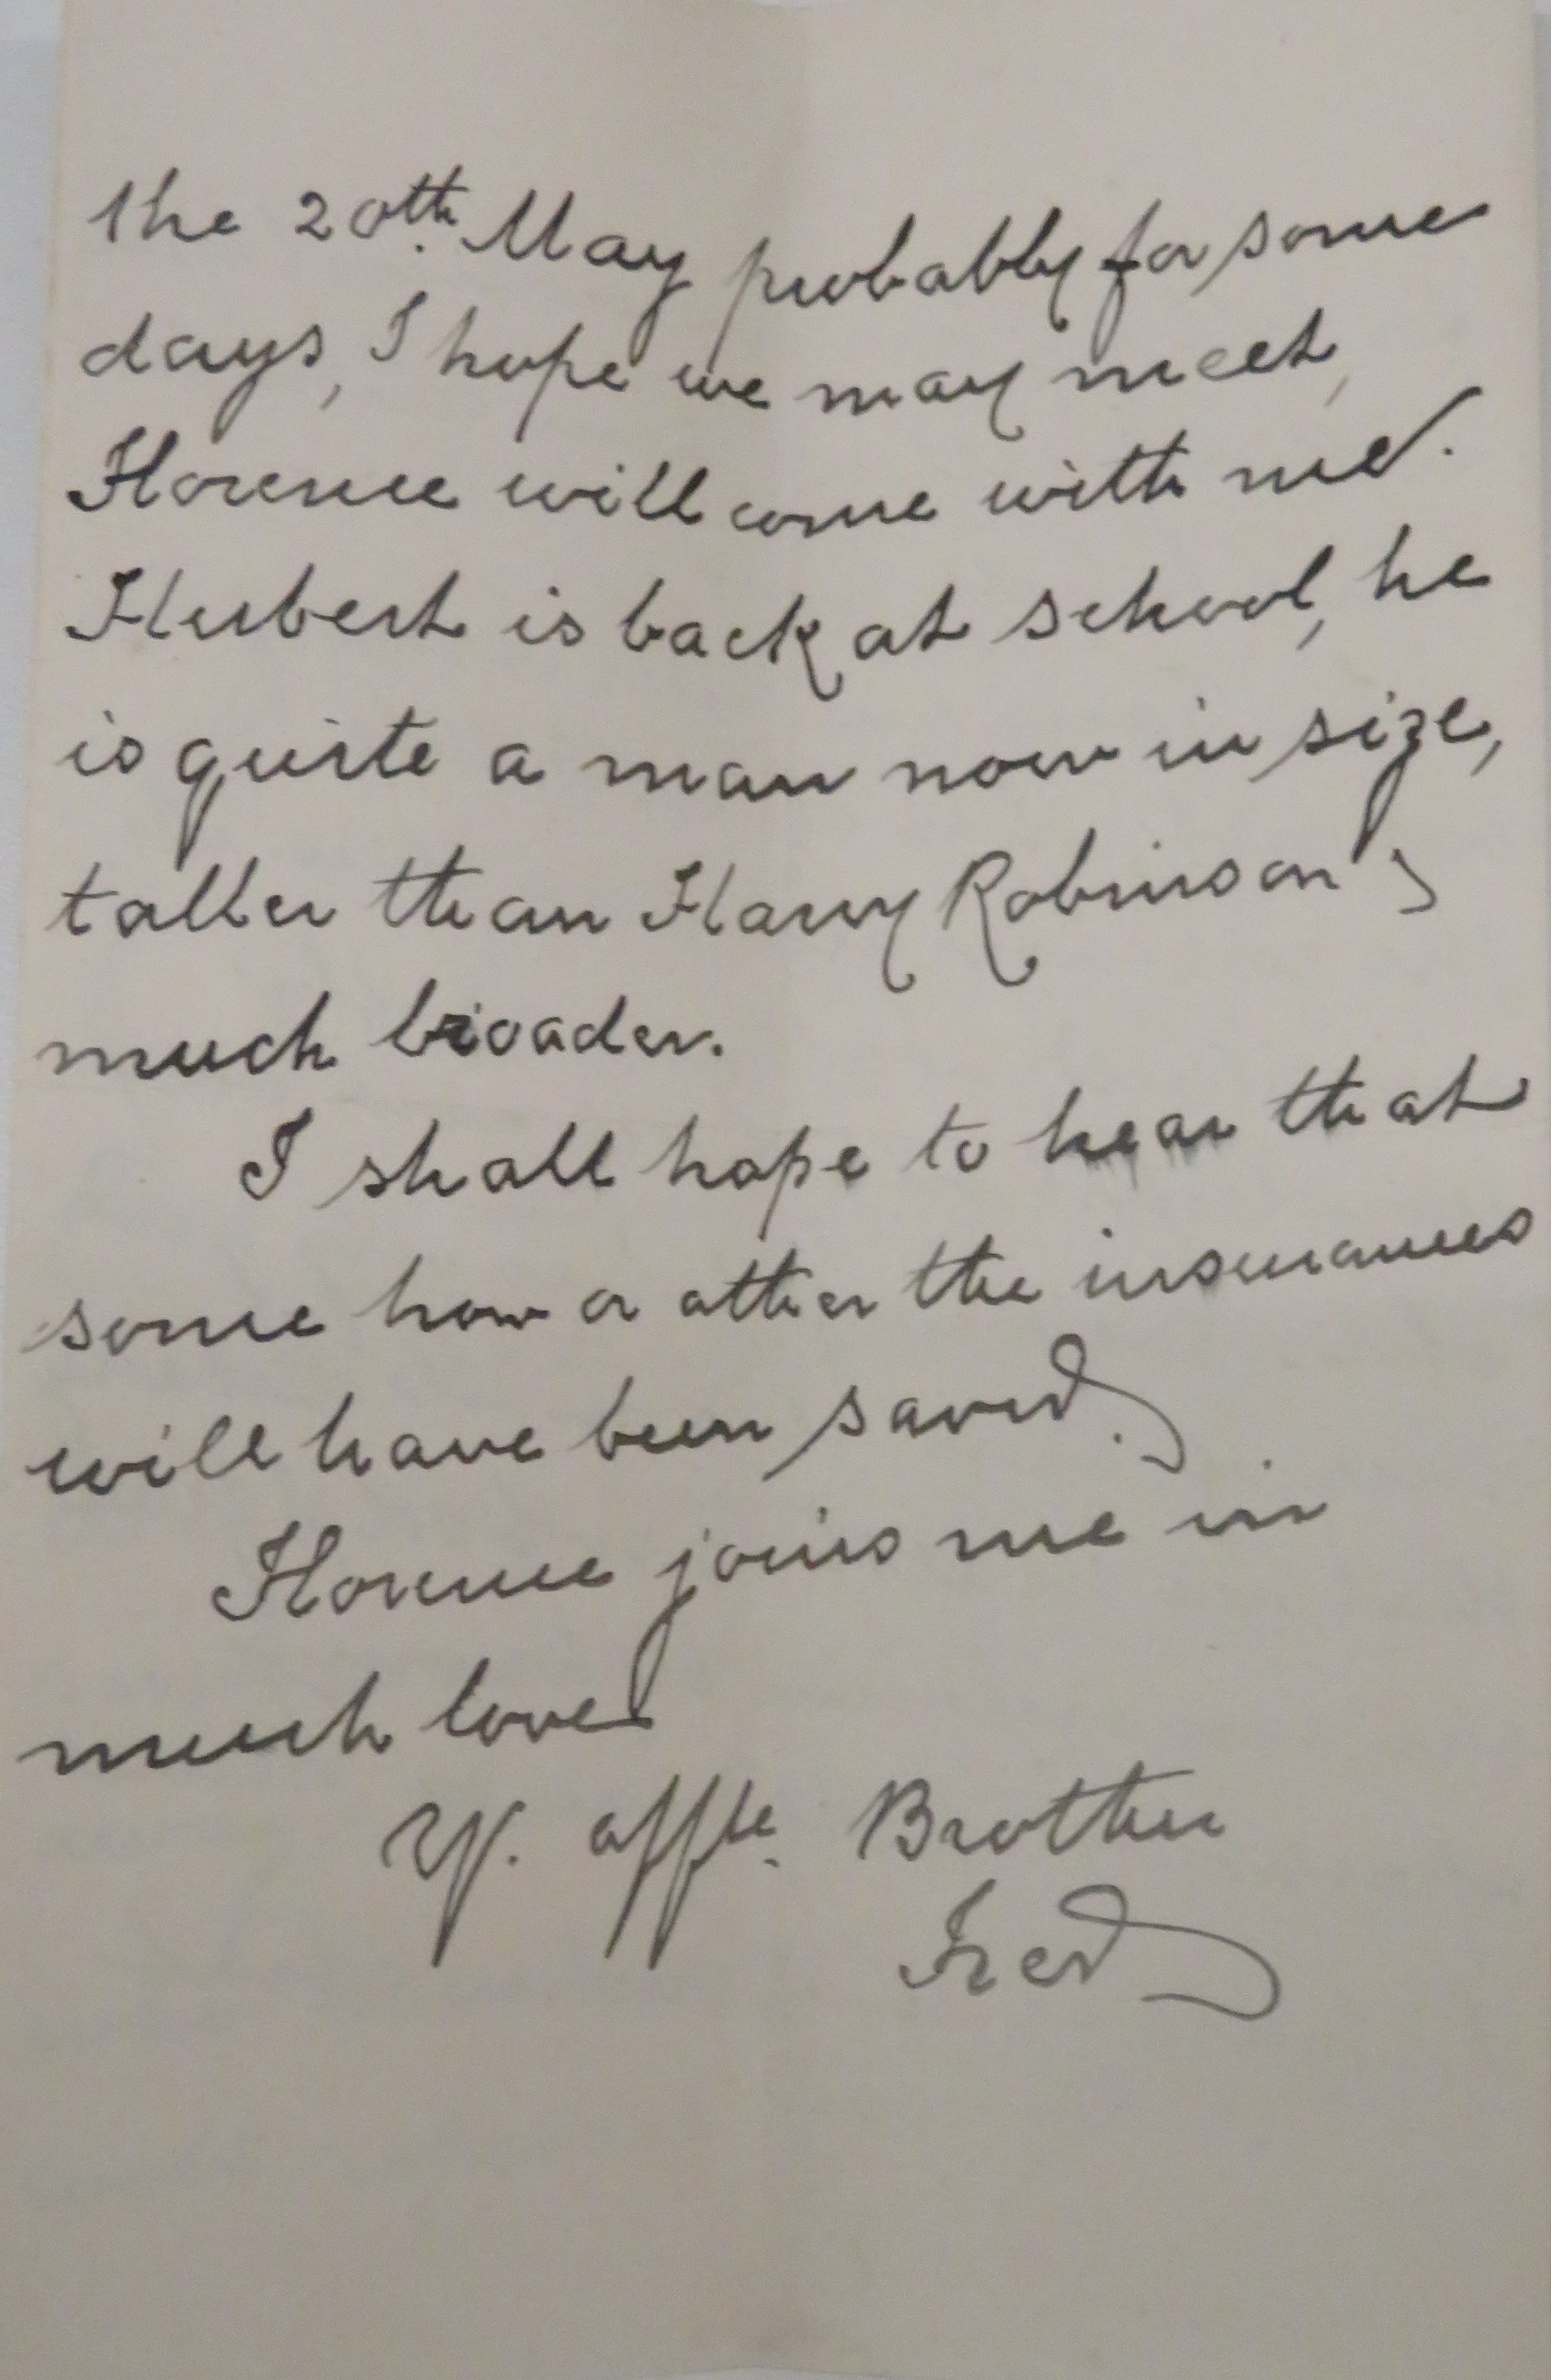 the 20th. May probably for some
days, I hope we may meet,
Florence will come with me.
Herbert is back at school, he
is quite a man now in size,
taller than Harry Robinson &
much broader.
I shall hope to hear that
some how or other the insurances
will have been saved.
Florence joins me in
much love
Yr. affte. Brother
Fred